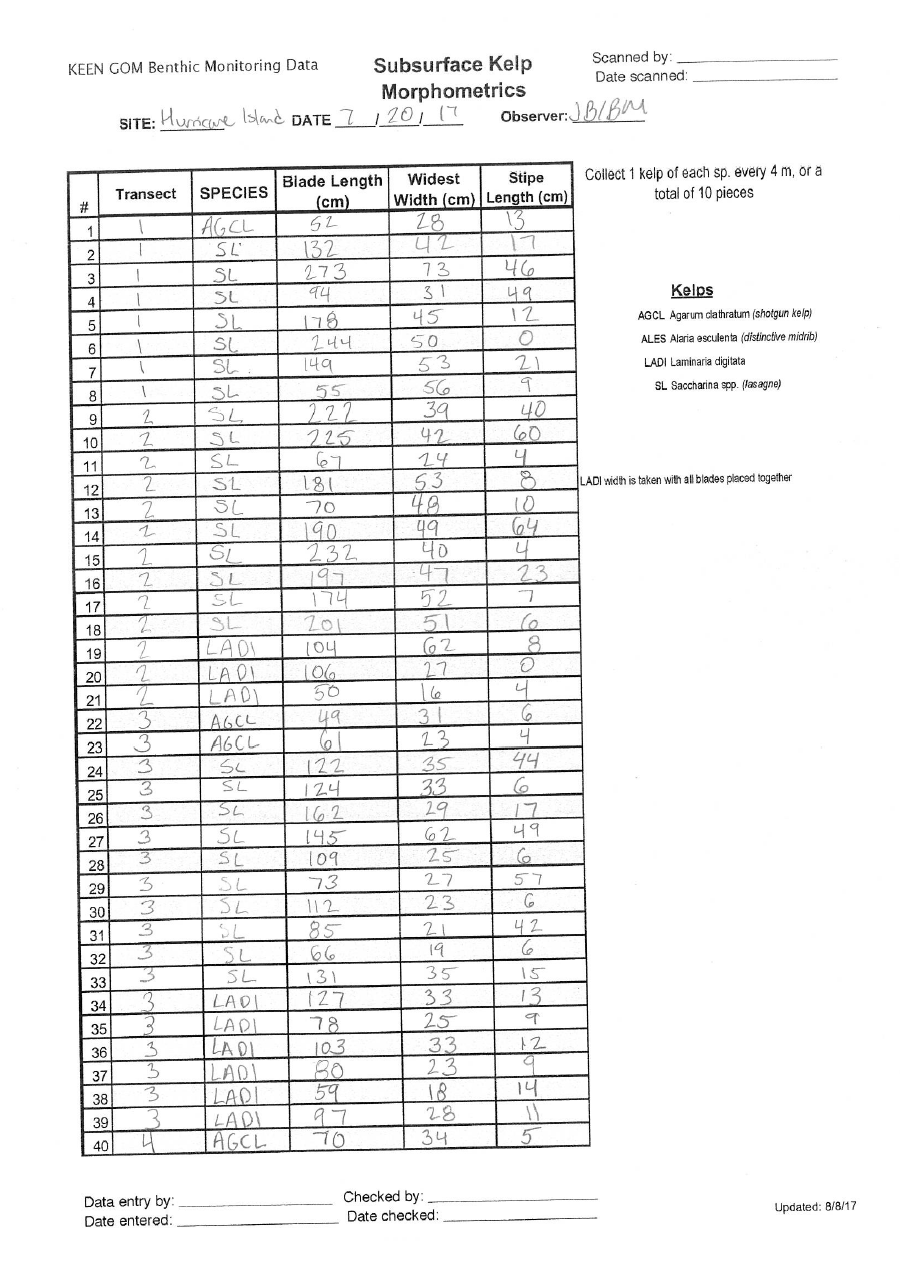 KEEN GOM Benthic Monitoring Data
Subsurface Kelp
Morphometrics
Scanned by:
Date scanned:
SITE: Hurricane Island DATE 7 / 20 / 17 Observer: JB/BM
Collect 1 kelp of each sp. every 4 m, or a
total of 10 pieces
# Transect SPECIES Blade Length (cm) Widest Width (cm) Stipe Length (cm)
1 1 AGCL 52 28 13
2 1 SL 132 42 17
3 1 SL 273 73 46
4 1 SL 94 31 49
5 1 SL 178 45 12
6 1 SL 244 50 0
7 1 SL 149 53 21
8 1 SL 55 56 9
9 2 SL 222 39 40
10 2 SL 225 42 60
11 2 SL 67 24 4
12 2 SL 181 53 8
13 2 SL 70 48 10
14 2 SL 190 49 64
15 2 SL 232 40 4
16 2 SL 197 47 23
17 2 SL 174 52 7
18 2 SL 201 51 6
19 2 LADI 104 62 8
20 2 LADI 106 27 0
21 2 LADI 50 16 4
22 3 AGCL 49 31 6
23 3 AGCL 61 23 4
24 3 SL 122 35 44
25 3 SL 124 33 6
26 3 SL 162 29 17
27 3 SL 145 62 49
28 3 SL 109 25 6
29 3 SL 73 27 57
30 3 SL 112 23 6
31 3 SL 85 21 42
32 3 SL 66 19 6
33 3 SL 131 35 15
34 3 LADI 127 33 13
35 3 LADI 78 25 9
36 3 LADI 103 33 12
37 3 LADI 80 23 9
38 3 LADI 59 18 14
39 3 LADI 97 28 11
40 4 AGCL 70 34 5
Kelps
AGCL Agarum clathratum (shotgun kelp)
ALES Alaria esculenta (distinctive midrib)
LADI Laminaria digitata
SL Saccharina spp. (lasagne)
LADI width is taken with all blades placed together
Data entry by:
Checked by:
Date entered:
Date checked:
Updated: 8/8/17